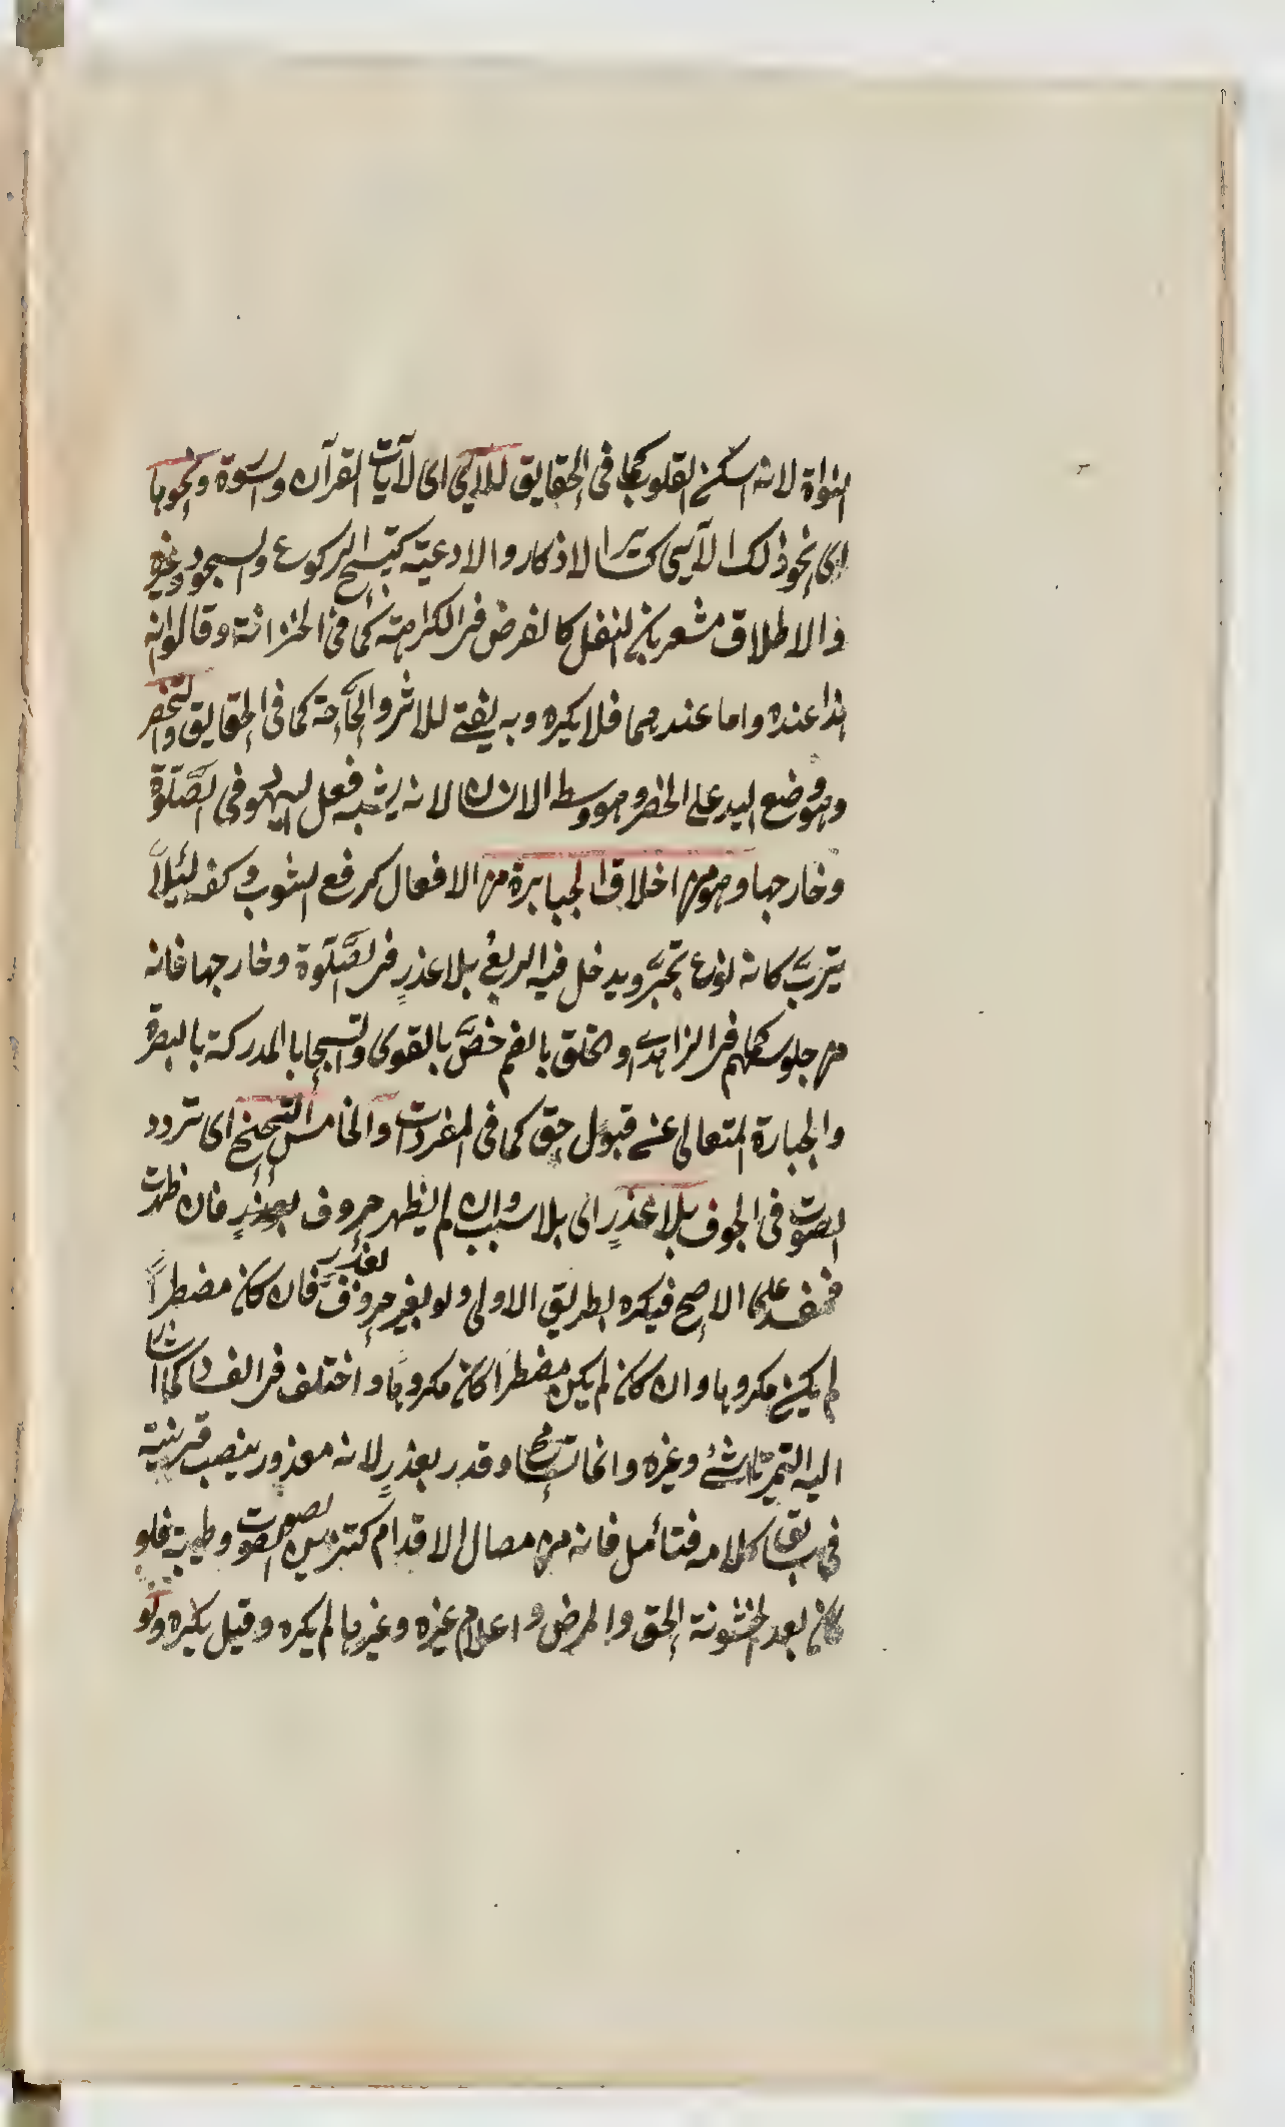 النواة لانه اسكن القلوب كما فى الحقايق للآى اى لآيات القرآن والسورة ونحوها
اى نحو ذلك الآى كسائر الاذكار والادعية كتسبيح الركوع والسجود وغيره
والاطلاق مشعر بان النفل كالفرض فى الكراهة كما فى الخزانة وقالوا انه
هذا عنده واما عندهما فلا يكره وبه يفتى للاثر والحاجة كما فى الحقايق والتخصر
وهو وضع اليد على الخصر وهو وسط الانسان لانه يشبه فعل اليهود فى الصلوة
وخارجها وهو من اخلاق الجبابرة من الافعال كرفع الثوب وكفه لئلا
يترب كانه نوع تجبر ويدخل فيه التربع بلا عذر فى الصلوة وخارجها فانه
من جلوسكم فى الزاهدى والخلق بالضم خص بالقوى والسجايا المدركة بالبصيرة
والجبارة المتعالى عن قبول حق كما فى المفردات والخامس التنحنح اى تردد
الصوت فى الجوف بلا عذر اى بلا سبب وان لم يظهر حروف بعذر فان ظهرت
فمفسد على الاصح فيكره بطريق الاولى ولو بغير حروف بعذر فان كان مضطراً
لم يكن مكروها وان كان لم يكن مضطرا كان مكروها واختلف فى الفساد كما اشار
اليه التمرتاشى وغيره وقدر بعذر لانه معذور بنصب قرينة
فى سابق كلامه فتأمل فانه من مصال الاقدام كتزيين الصوت وطيبه فلو
كان بعد الخشونة الحق والمرض واعلام غيره وغيرها لم يكره وقيل يكره ولو